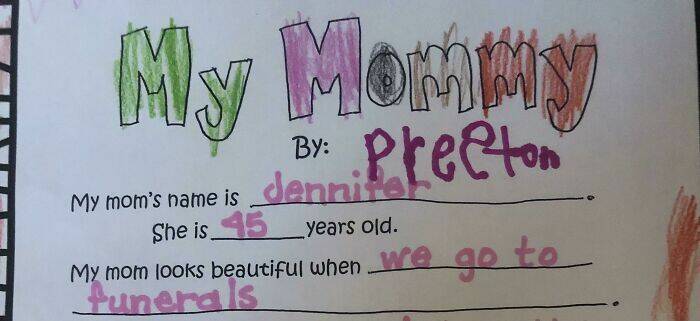 My Mommy
By: Preston
My mom's name is dennifer.
She is 45 years old.
My mom looks beautiful when we go to
funerals.